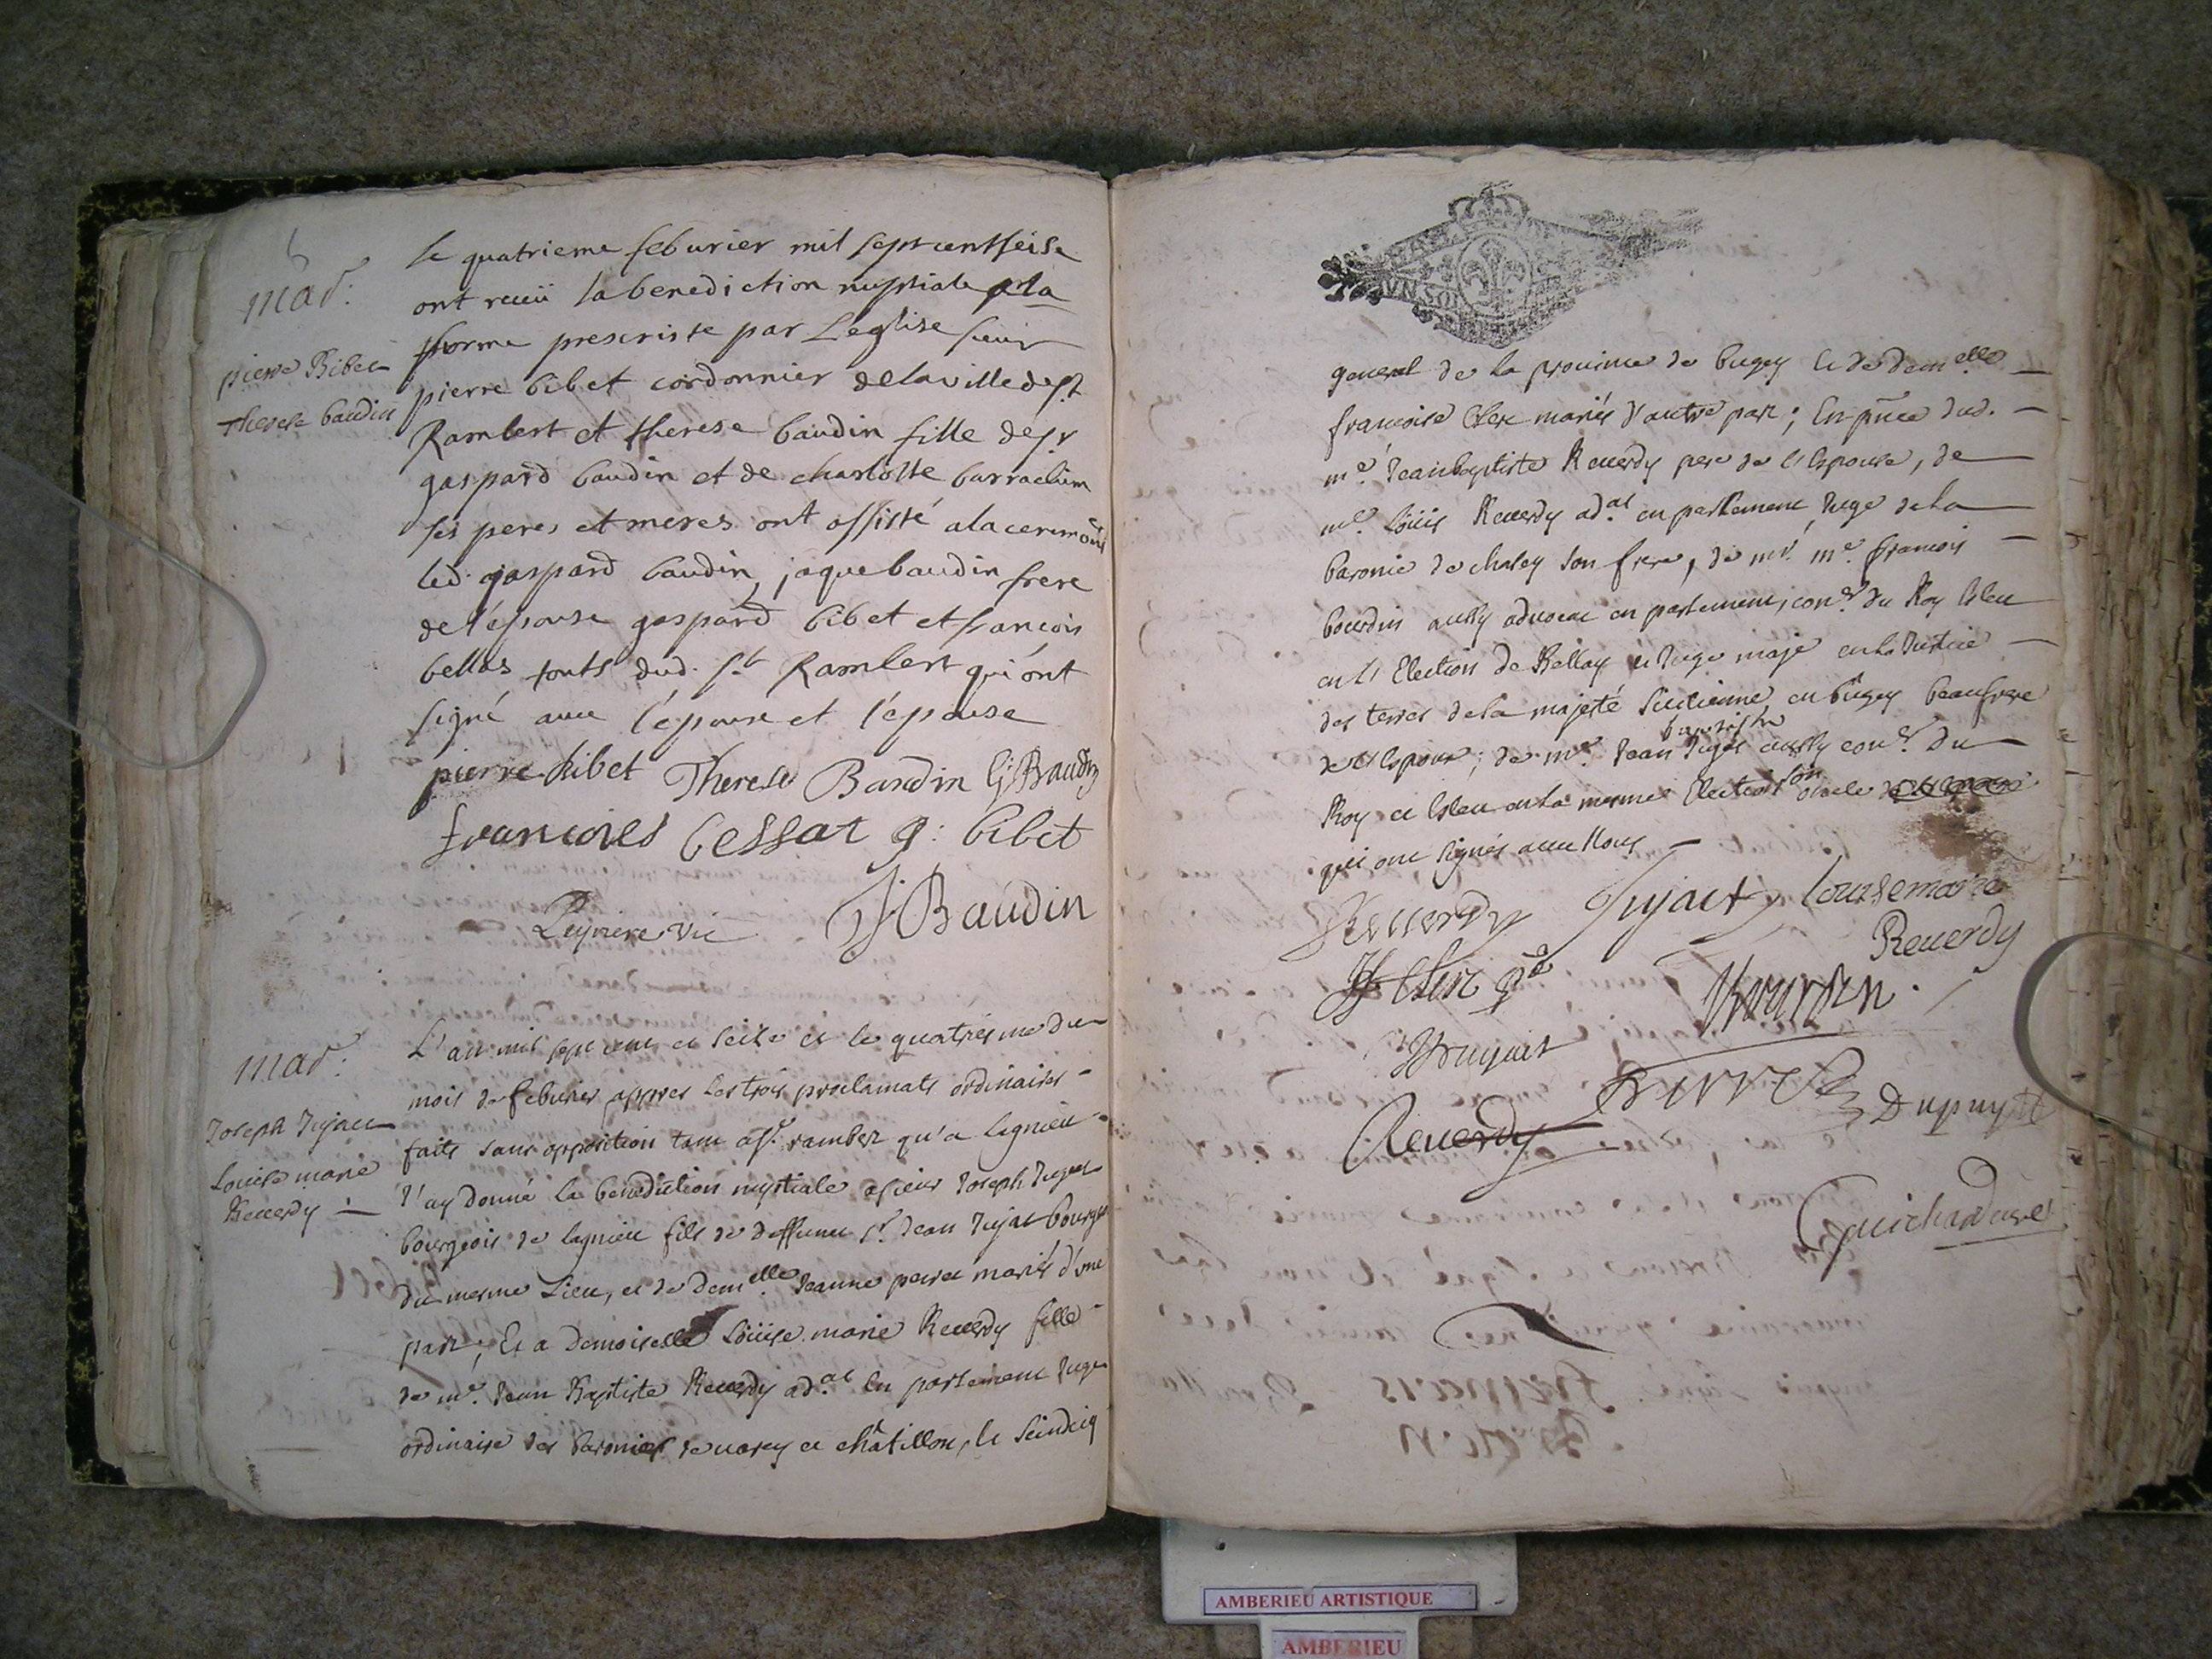 mar.
pierre Bibet
Therese baudin
le quatrieme feburier mil sept cent seise
ont receü la benediction nuptiale a la
forme prescriste par L'eglise sieur
pierre bibet cordonnier de la ville de st
Rambert et therese baudin fille de sr
gaspard baudin et de charlotte barrachim
ses peres et meres ont assisté a la ceremonie
led. gaspard baudin, jaque baudin frere
de l'épouse gaspard bibet et françois
touts dud. st Rambert qui ont
signé avec l'épouse et l'épouse
pierre bibet Therese Baudin G Baudin
francoies bessat g: bibet
vic J Baudin
mar.
Joseph Jujat
Louise marie
Reuerdy
L'an mil sept cent et seise et le quatriesme du
mois de feburier appres les trois proclamats ordinaires
faits sans opposition tant a st. rambert qu'a lagnieu
J'ay donné la benediction nuptiale a sieur Joseph Jujat
bourgeois de lagnieu fils de deffunt sr. Jean Jujat bourgeois
du mesme Lieu, et de demelle. Jeanne mariés d'une
part; Et a Demoiselle Loüise marie Reuerdy fille
de me. Jean Baptiste Reuerdy adat. en parlement Juge
ordinaire des baronies de uarey et châtillon, le scindicq
UN SOL
general de la prouince de bugey et de demelle
francoise Clerc mariés d'autre part; En pñce dud.
me. Jean baptiste Reuerdy pere de l'Espouse, de
me. Loüis Reuerdy adat en parlement, Juge de la
baronie de chaley son frere, de mr. me. francois
bourdin aussy aduocat en parlement, coner. du Roy Esleu
en l'Election de Bellay et Juge maje en la Justice
des terres de la majesté Sicilienne en bugey beaufrere
de l'Espoux; de me. Jean baptiste Jujat aussy coner. du
Roy et Esleu en la mesme Election son oncle
qui ont signés auec Nous
Reuerdy Jujact Louise marie
Reuerdy
Clerc
Bourdin
Reuerdy Dupuy
Guichard curé
AMBERIEU ARTISTIQUE
AMBERIEU